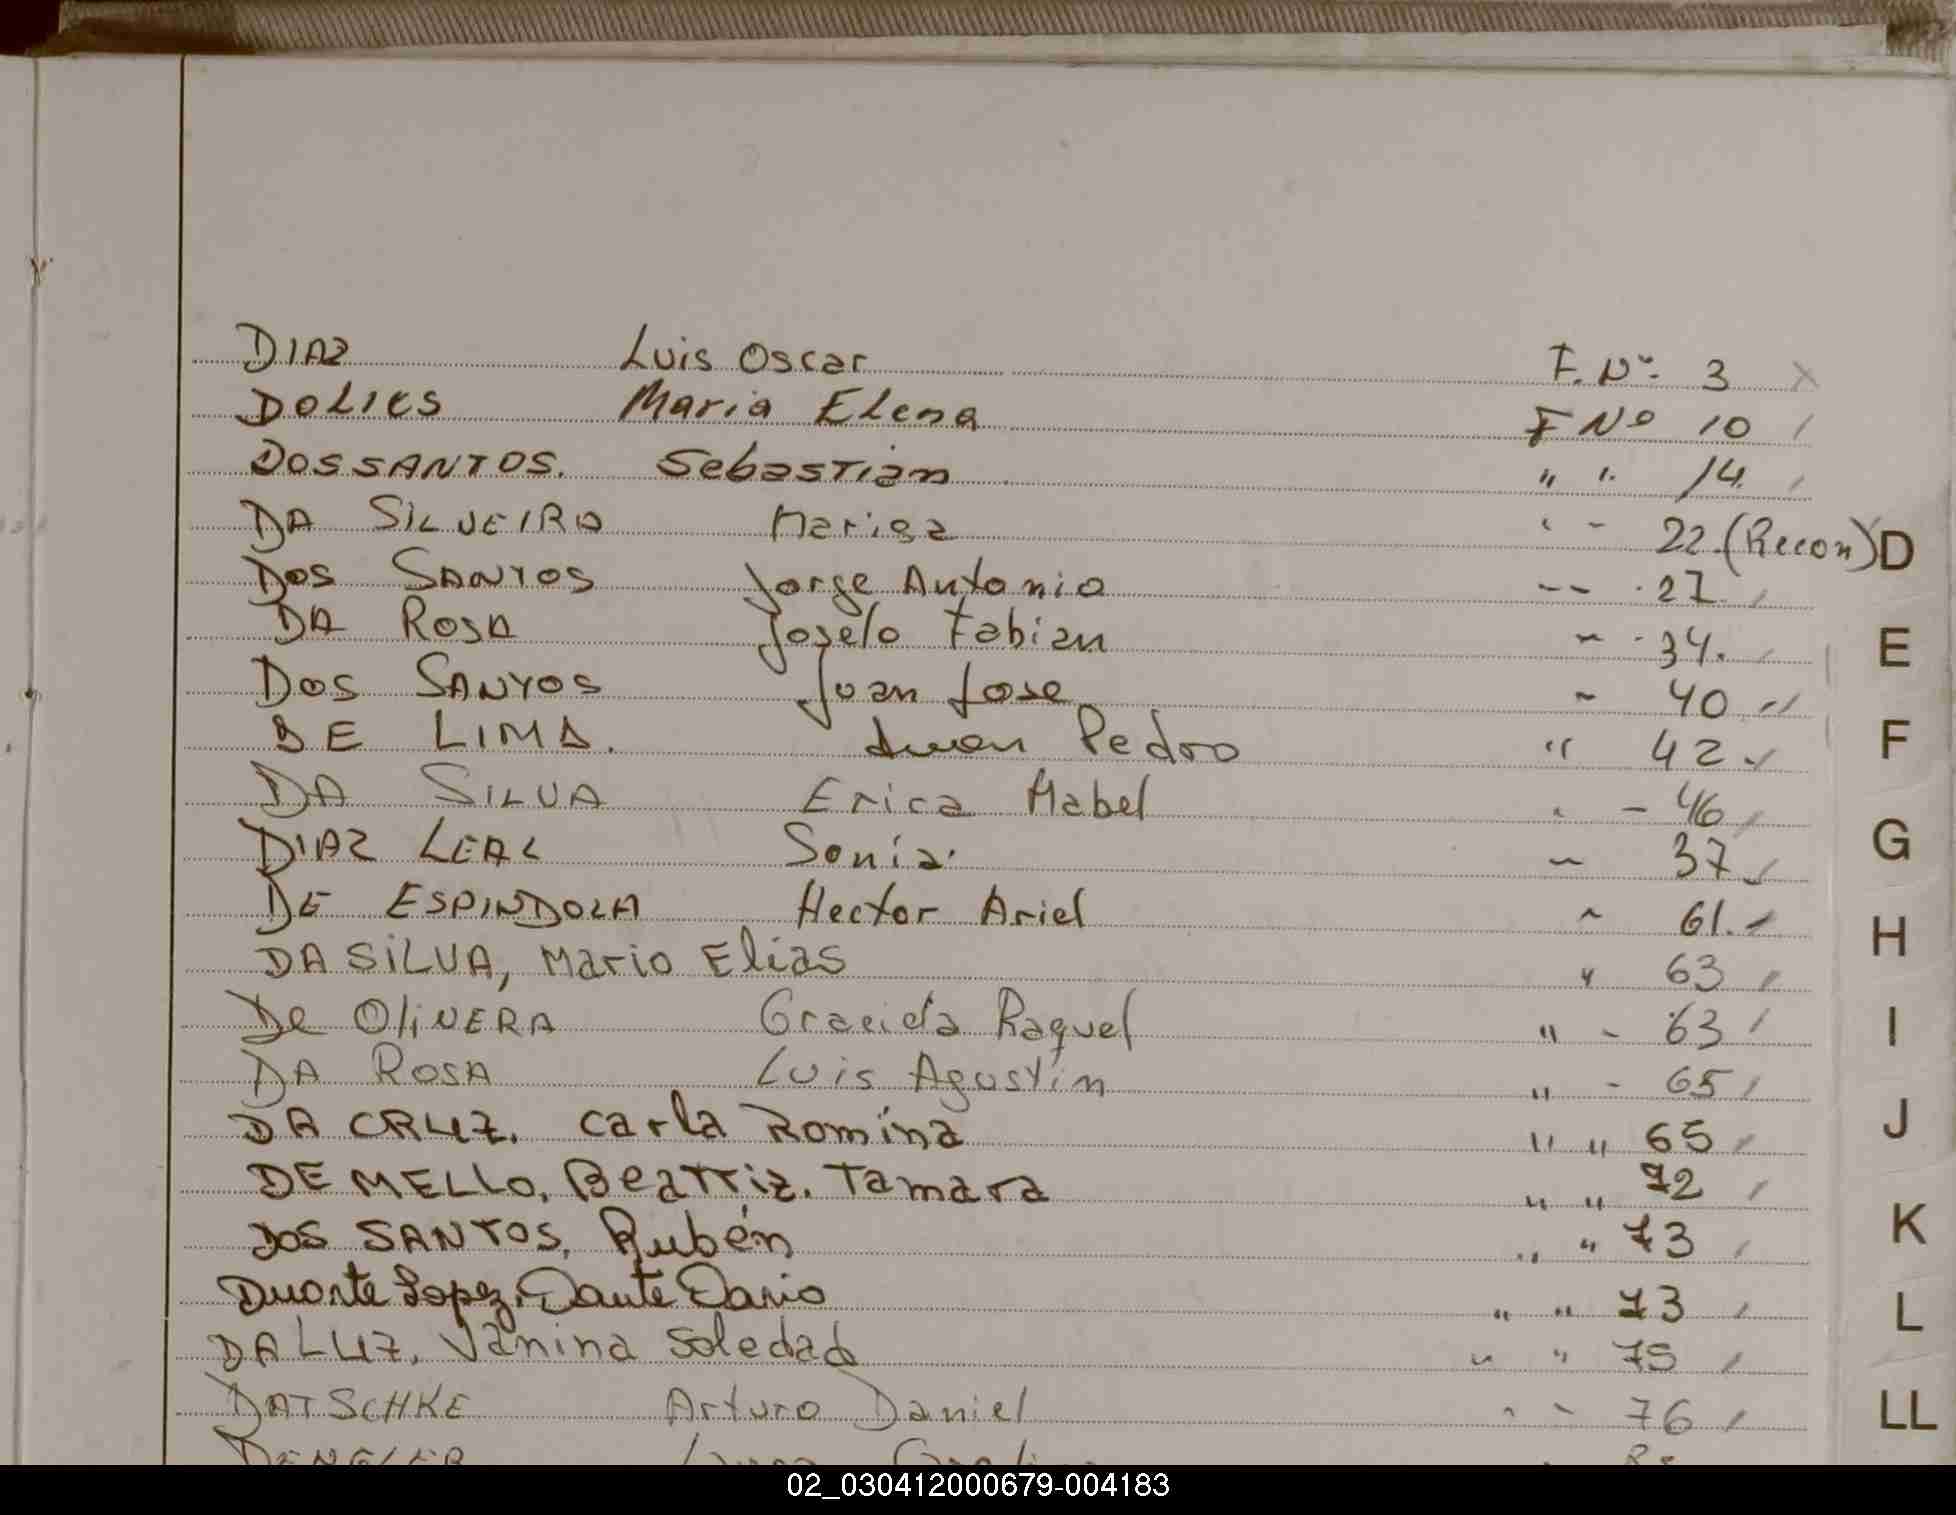 DIAZ Luis Oscar F. Nº 3 X
DOLIES Maria Elena F Nº 10 /
DOSSANTOS. Sebastián " " 14. /
DA SILVEIRA Marisa " - 22. (Recon) D
DOS SANTOS Jorge Antonio -- 27. /
DA ROSA Joselo Fabian ~ 34. / E
DOS SANTOS Juan Jose ~ 40 "
DE LIMA. Juan Pedro " 42 F
DA SILVA Erica Mabel . - 46 /
DIAZ LEAL Sonia. ~ 37 G
DE ESPINDOLA Hector Ariel ~ 61. H
DA SILVA, Mario Elias " 63 /
De OliVERA Graciela Raquel " - 63 / I
DA ROSA Luis Agustín " - 65 /
DA CRUZ. Carla Romina " " 65 / J
DE MELLO, Beatriz. Tamara " " 72 /
DOS SANTOS, Rubén " " 73 / K
Duarte Lopez, Dante Dario " " 73 / L
DA LUZ, Vanina Soledad " " 75 /
DATSCHKE Arturo Daniel " ~ 76 / LL
02_030412000679-004183